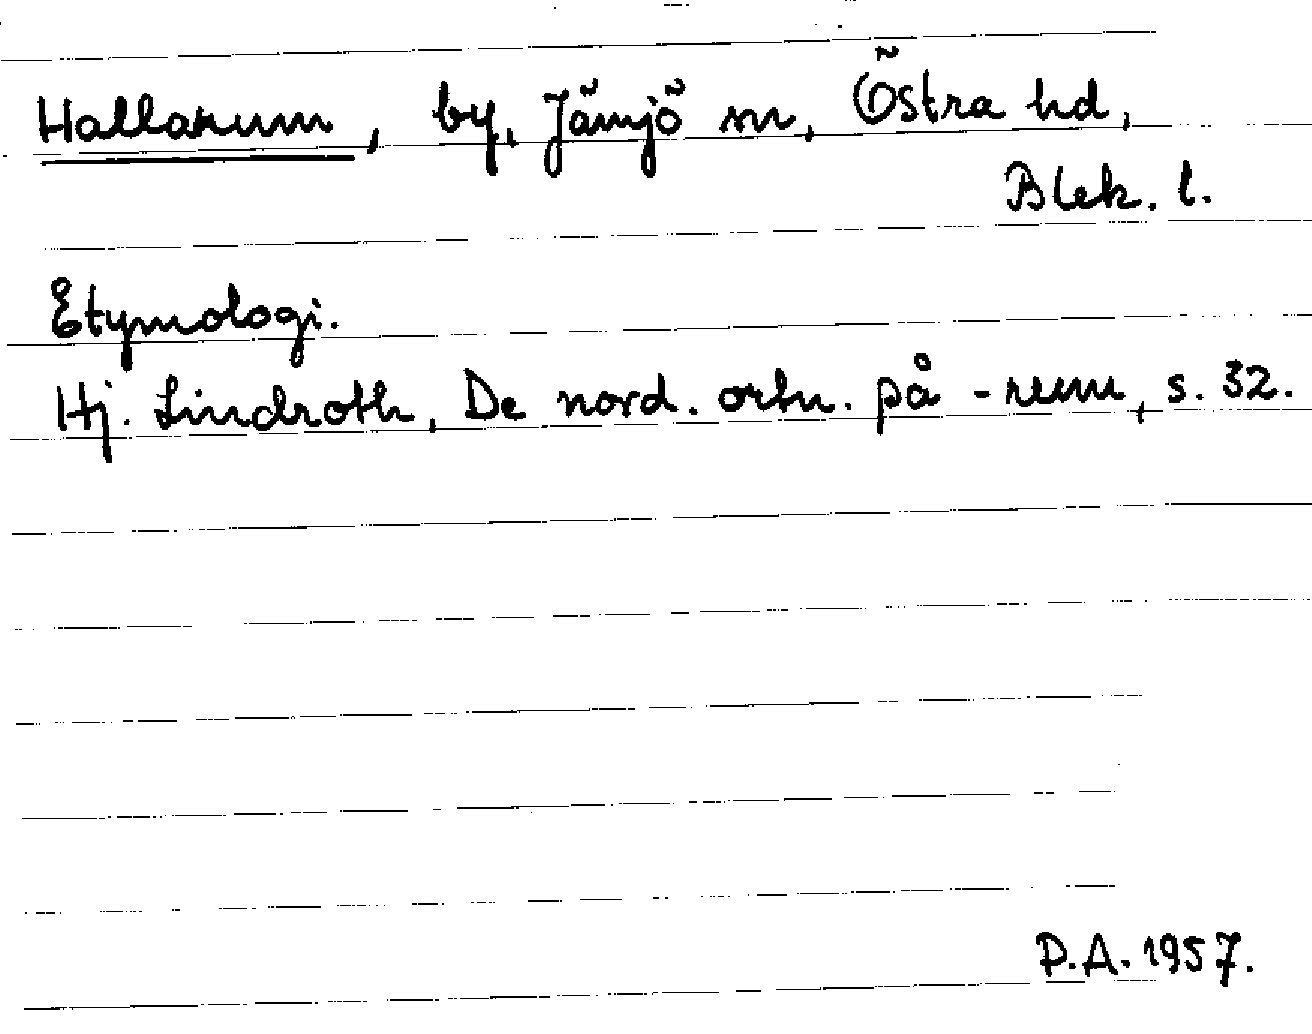 Hallarum, by, Jämjö sn, Östra hd,
Blek. l.
Etymologi.
Hj. Lindroth, De nord. ortn. på -rum, s. 32.
P.A. 1957.